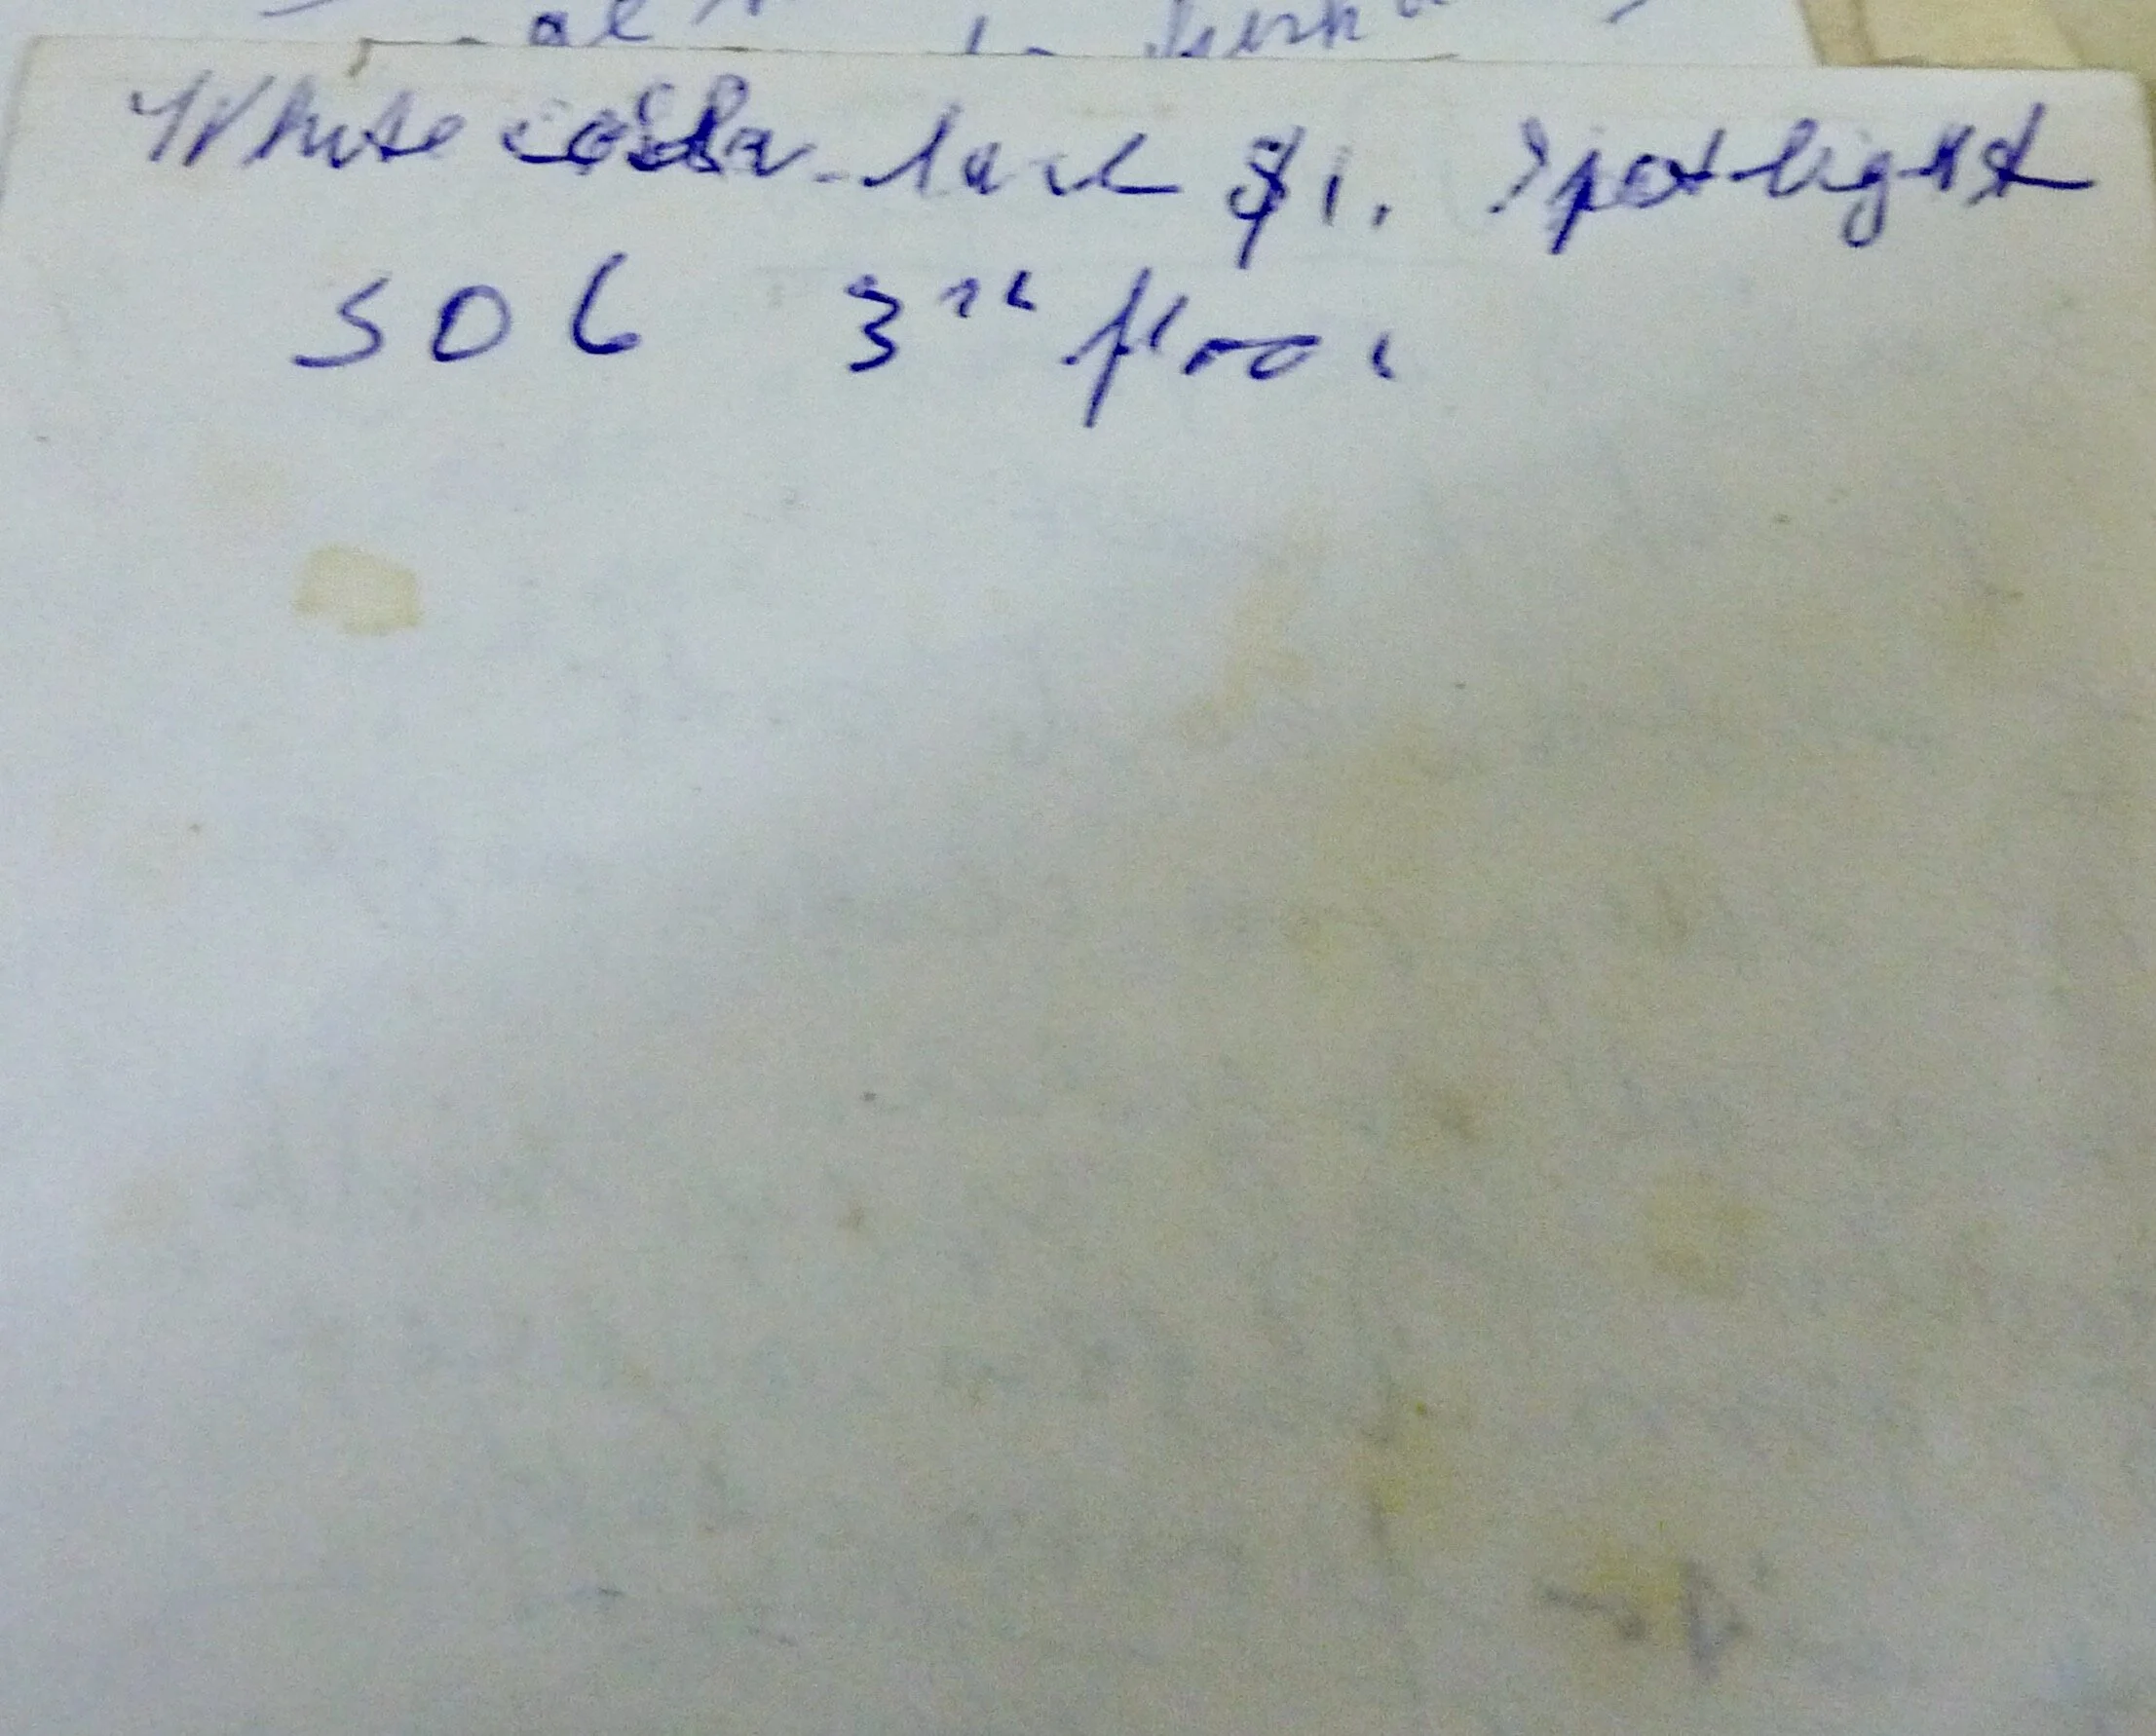 White cotton lace $1. Spotlight
506 3rd floor